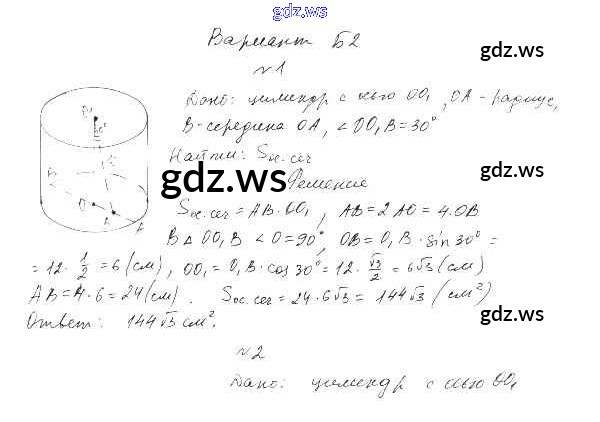 gdz.ws
Вариант Б2
gdz.ws
№1
Дано: цилиндр с осью OO₁, OA - радиус,
B - середина OA, ∠OO₁B = 30°
Найти: Sос.сеч
gdz.ws
gdz.ws
Решение
Sос.сеч = AB·OO₁, AB = 2AO = 4·OB
В Δ OO₁B ∠O = 90°, OB = O₁B·sin 30° =
= 12·1/2 = 6 (см), OO₁ = O₁B·cos 30° = 12·√3/2 = 6√3 (см)
AB = 4·6 = 24 (см). Sос.сеч = 24·6√3 = 144√3 (см²)
gdz.ws
Ответ: 144√3 см².
№2
Дано: цилиндр с осью OO₁